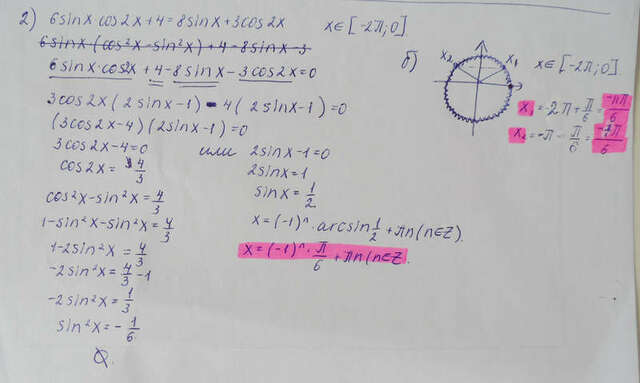 2) 6sinx cos2x+4=8sinx+3cos2x x∈[-2π;0]
6sinx(cos²x-sin²x)+4-8sinx-3
6sinx·cos2x+4-8sinx-3cos2x=0
3cos2x(2sinx-1)-4(2sinx-1)=0
(3cos2x-4)(2sinx-1)=0
3cos2x-4=0 или 2sinx-1=0
cos2x=4/3
2sinx=1
cos²x-sin²x=4/3
sinx=1/2
1-sin²x-sin²x=4/3
x=(-1)ⁿ·arcsin1/2+πn(n∈Z).
1-2sin²x=4/3
x=(-1)ⁿ·π/6+πn(n∈Z
-2sin²x=4/3-1
-2sin²x=1/3
sin²x=-1/6
∅.
б) x₂ x₁ x∈[-2π;0]
x₁=-2π+π/6=-11π/6
x₂=-π-π/6=-7π/6